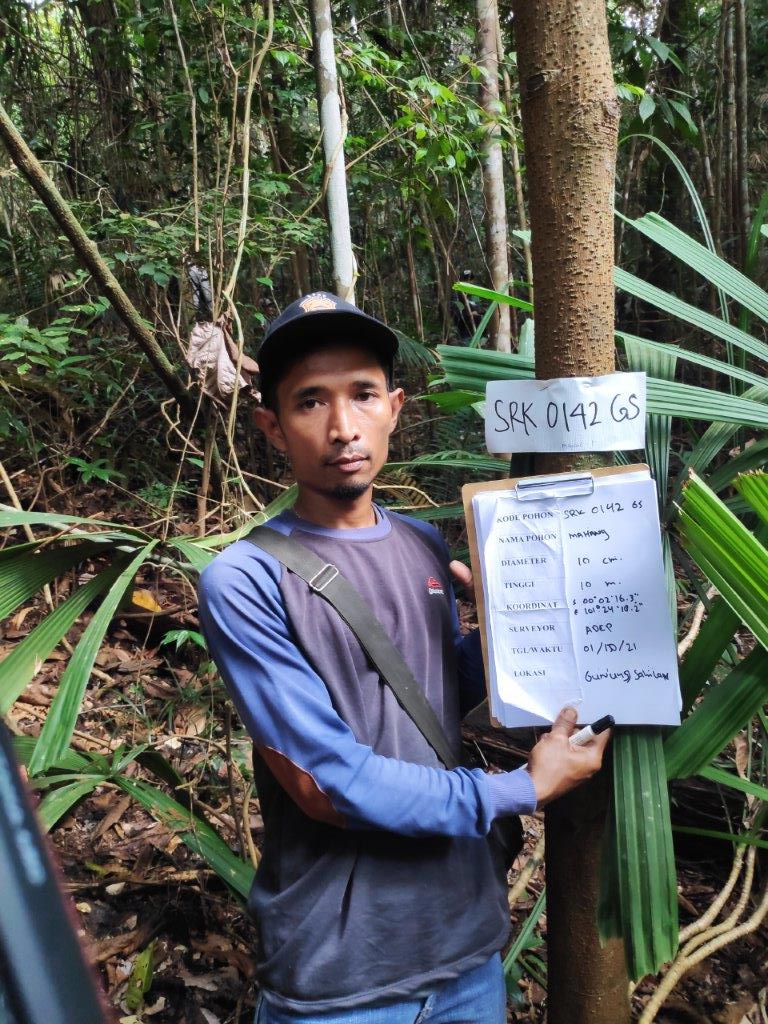 SRK 0142 GS
KODE POHON SRK 0142 GS
NAMA POHON MAHANG
DIAMETER 10 cm.
TINGGI 10 m.
KOORDINAT S 00°02'16.3"
E 101°24'18.2"
SURVEYOR ADEP
TGL/WAKTU 01/10/21
LOKASI Gunung Sahilan